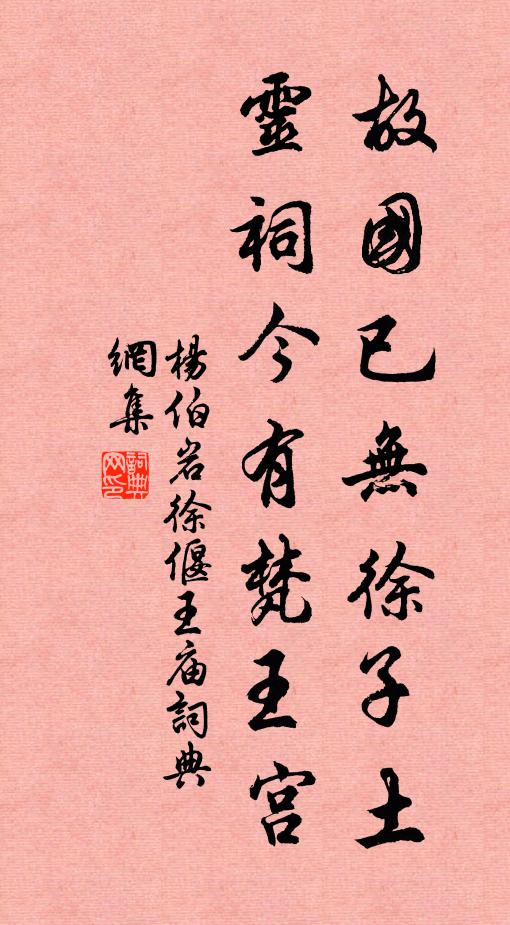 故國已無徐子土
靈祠今有梵王宫
楊伯岩徐偃王庙詞典
網集
詞典
网印